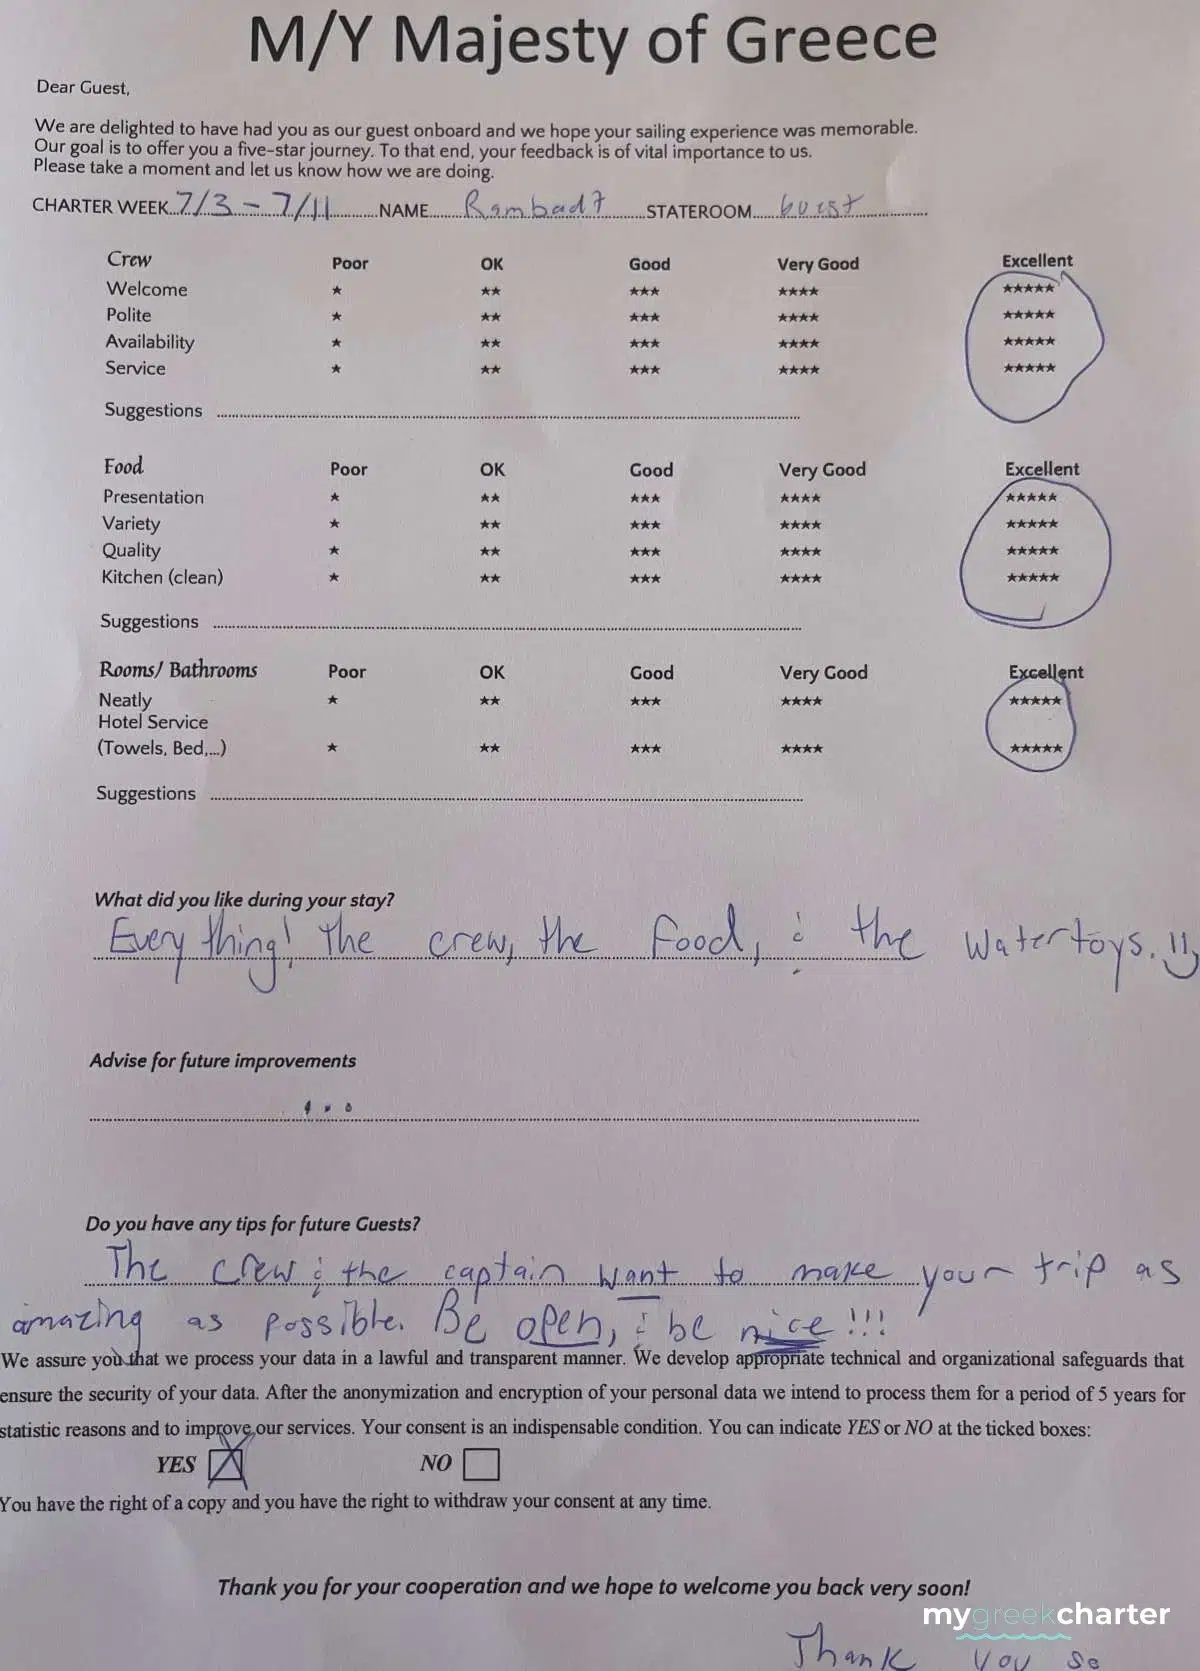 M/Y Majesty of Greece
Dear Guest,
We are delighted to have had you as our guest onboard and we hope your sailing experience was memorable.
Our goal is to offer you a five-star journey. To that end, your feedback is of vital importance to us.
Please take a moment and let us know how we are doing.
CHARTER WEEK 7/3 - 7/11 NAME Rambadt STATEROOM Guest
Crew Poor OK Good Very Good Excellent
Welcome ★ ★★ ★★★ ★★★★ ★★★★★
Polite ★ ★★ ★★★ ★★★★ ★★★★★
Availability ★ ★★ ★★★ ★★★★ ★★★★★
Service ★ ★★ ★★★ ★★★★ ★★★★★
Suggestions
Food Poor OK Good Very Good Excellent
Presentation ★ ★★ ★★★ ★★★★ ★★★★★
Variety ★ ★★ ★★★ ★★★★ ★★★★★
Quality ★ ★★ ★★★ ★★★★ ★★★★★
Kitchen (clean) ★ ★★ ★★★ ★★★★ ★★★★★
Suggestions
Rooms/ Bathrooms Poor OK Good Very Good Excellent
Neatly ★ ★★ ★★★ ★★★★ ★★★★★
Hotel Service
(Towels, Bed,...) ★ ★★ ★★★ ★★★★ ★★★★★
Suggestions
What did you like during your stay?
Everything! The crew, the food, & the watertoys. :)
Advise for future improvements
...
Do you have any tips for future Guests?
The crew & the captain want to make your trip as
amazing as possible. Be open, & be nice!!!
We assure you that we process your data in a lawful and transparent manner. We develop appropriate technical and organizational safeguards that
ensure the security of your data. After the anonymization and encryption of your personal data we intend to process them for a period of 5 years for
statistic reasons and to improve our services. Your consent is an indispensable condition. You can indicate YES or NO at the ticked boxes:
YES NO
You have the right of a copy and you have the right to withdraw your consent at any time.
Thank you for your cooperation and we hope to welcome you back very soon!
mygreekcharter
Thank you so